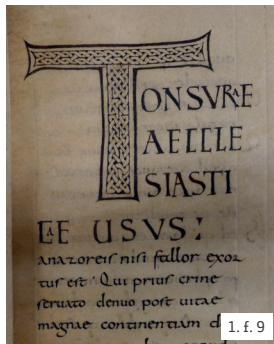 TONSURAE
AECCLE
SIASTI
CAE USUS:
anazoreis nisi fallor exor
tus est. Qui prius crine
seruato denuo post uitae
magnae continentiam d
1. f. 9